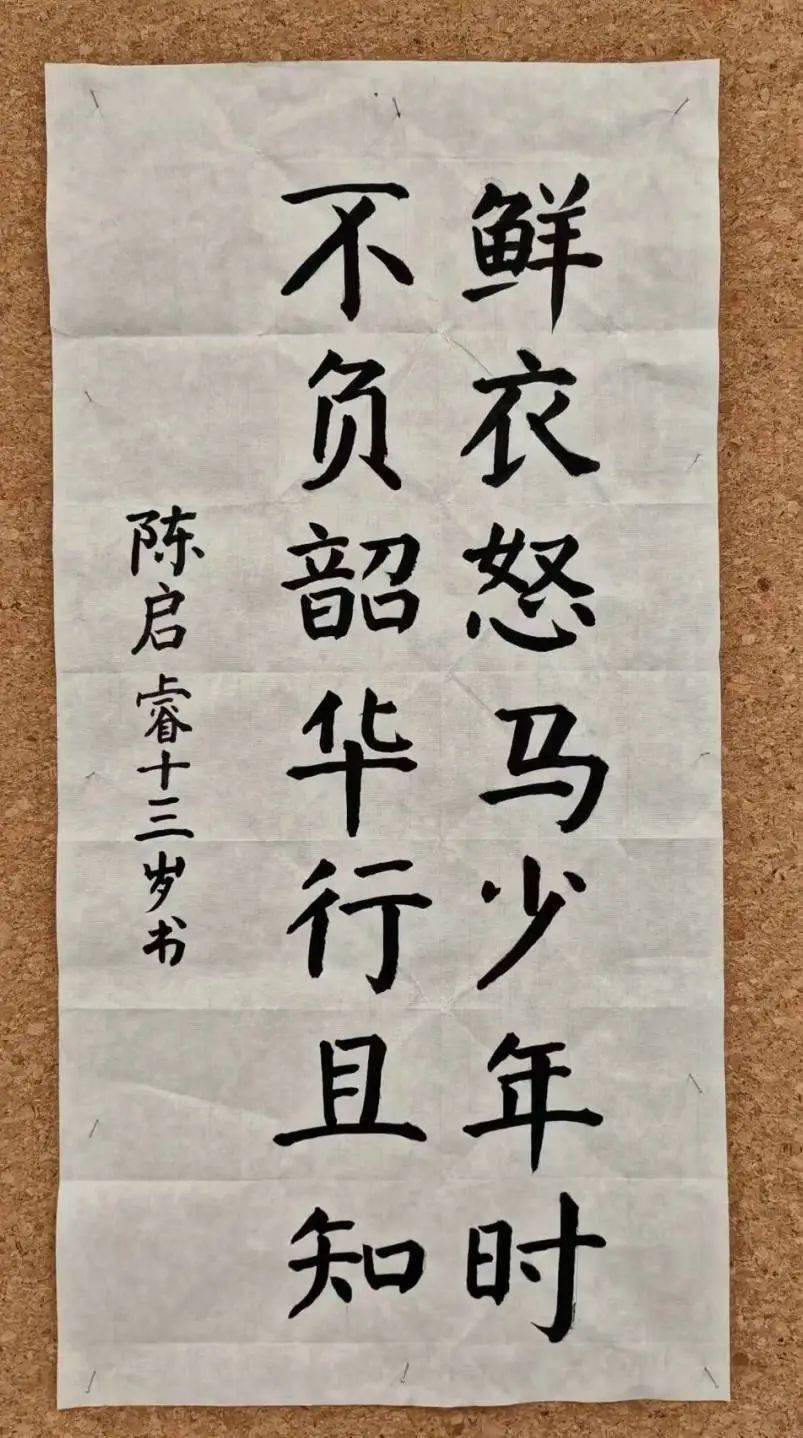 鲜衣怒马少年时
不负韶华行且知
陈启睿十三岁书